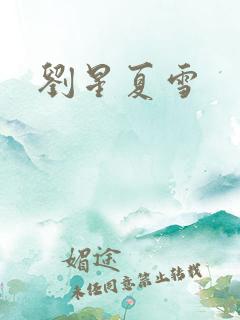 劉星夏雪
媚途
未经同意禁止转载